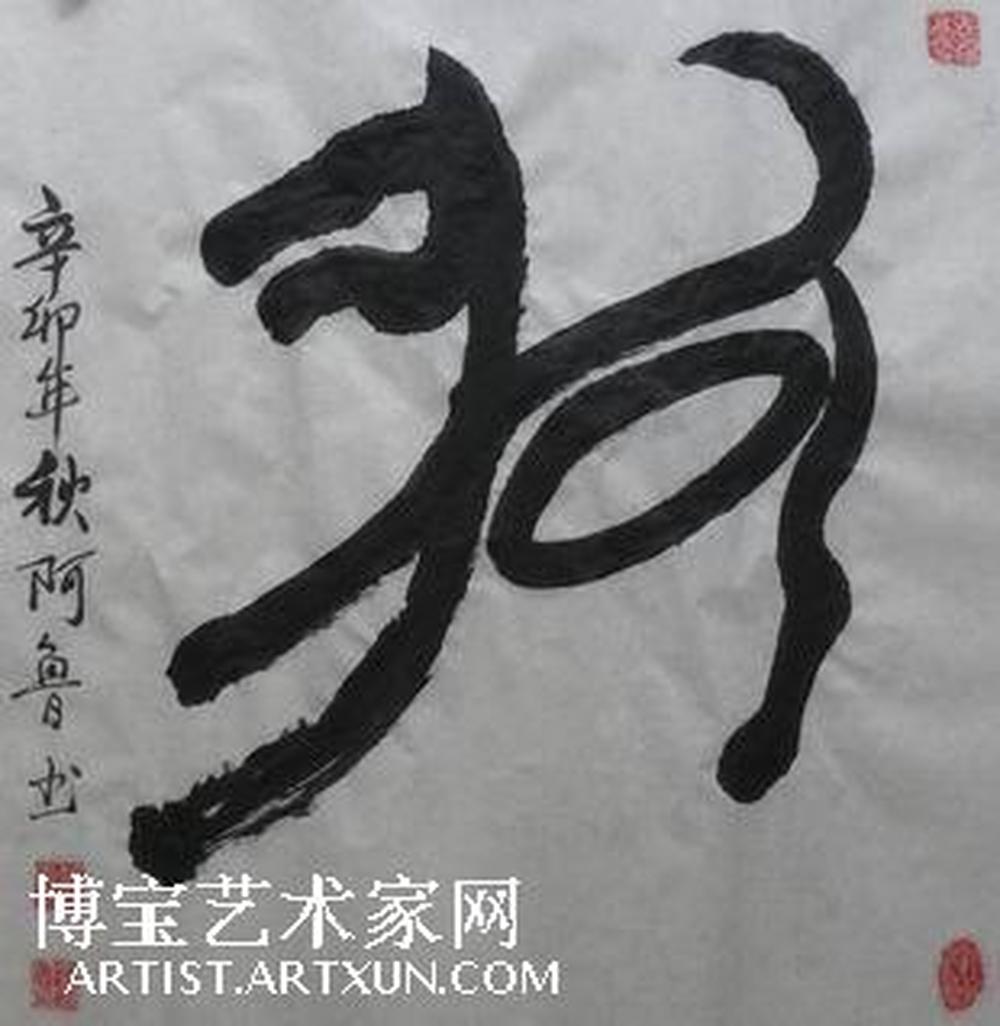 辛卯年秋阿鲁书
博宝艺术家网
ARTIST.ARTXUN.COM